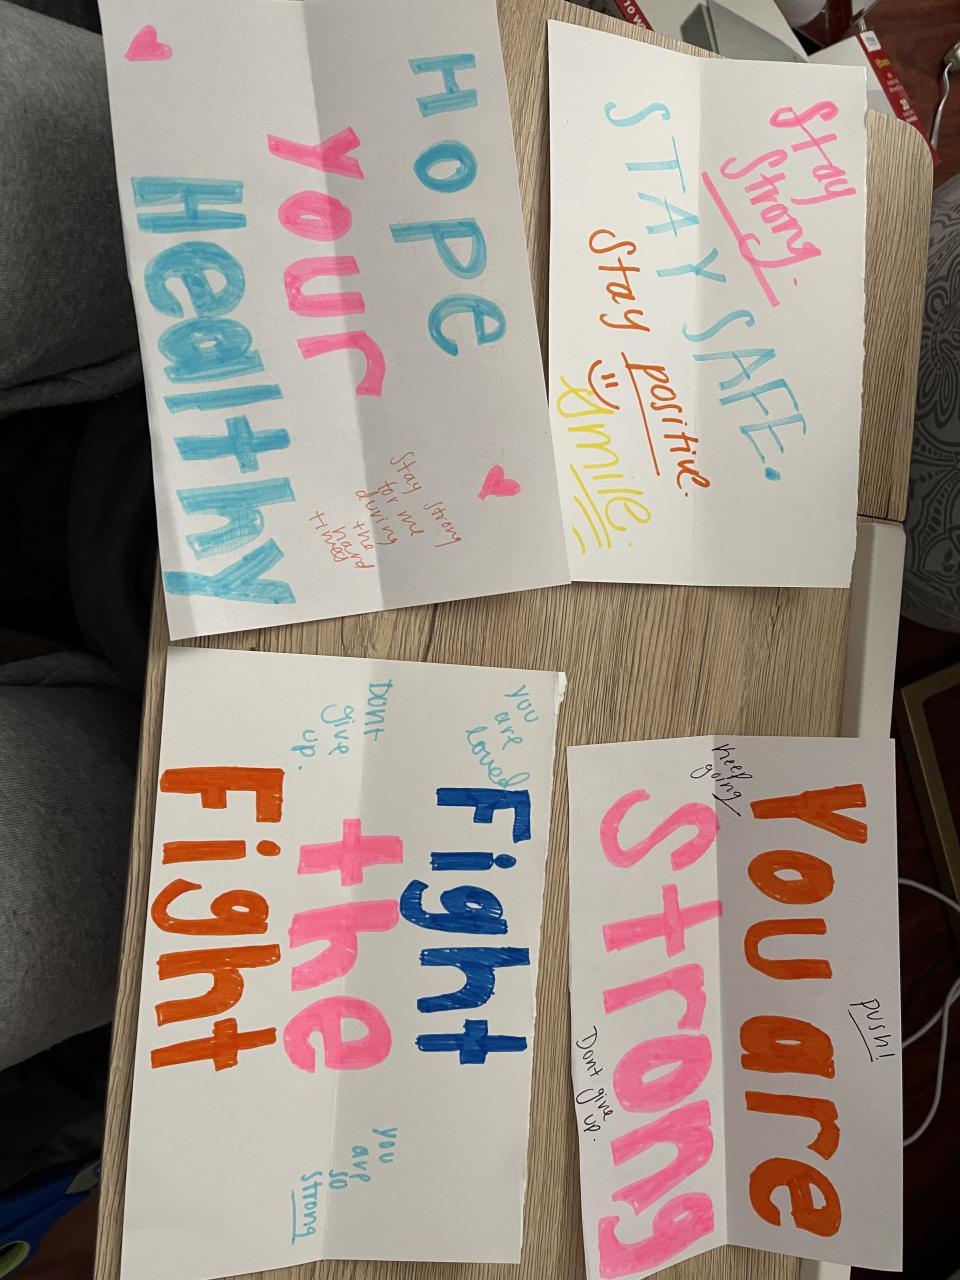 Hope
Your
Healthy
Stay strong
for me
during
the
hard
times
Stay
Strong.
STAY SAFE.
Stay positive.
Smile.
you
are
loved
Dont
give
up.
Fight
the
Fight
you
are
so
strong
keep
going
You are
Strong
push!
Dont give
up.